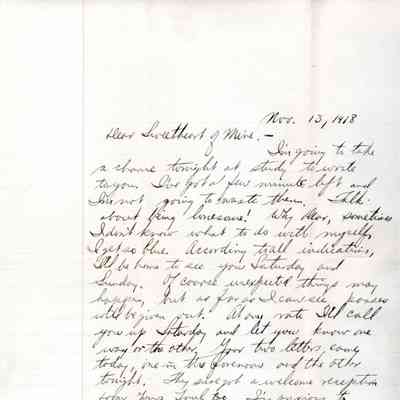 Nov. 13, 1918
Dear Sweetheart of Mine, -
I'm going to take
a chance tonight at study to write
to you. I've got a few minutes left and
I'm not going to waste them. Talk
about being lonesome! Why Dear, sometimes
I don't know what to do with myself,
I get so blue. According to all indications,
I'll be home to see you Saturday and
Sunday. Of course unexpected things may
happen, but as far as I can see, passes
will be given out. At any rate I'll call
you up Saturday and let you know one
way or the other. Your two letters came
today, one in the forenoon and the other
tonight. They always get a welcome reception
I'm anxious to